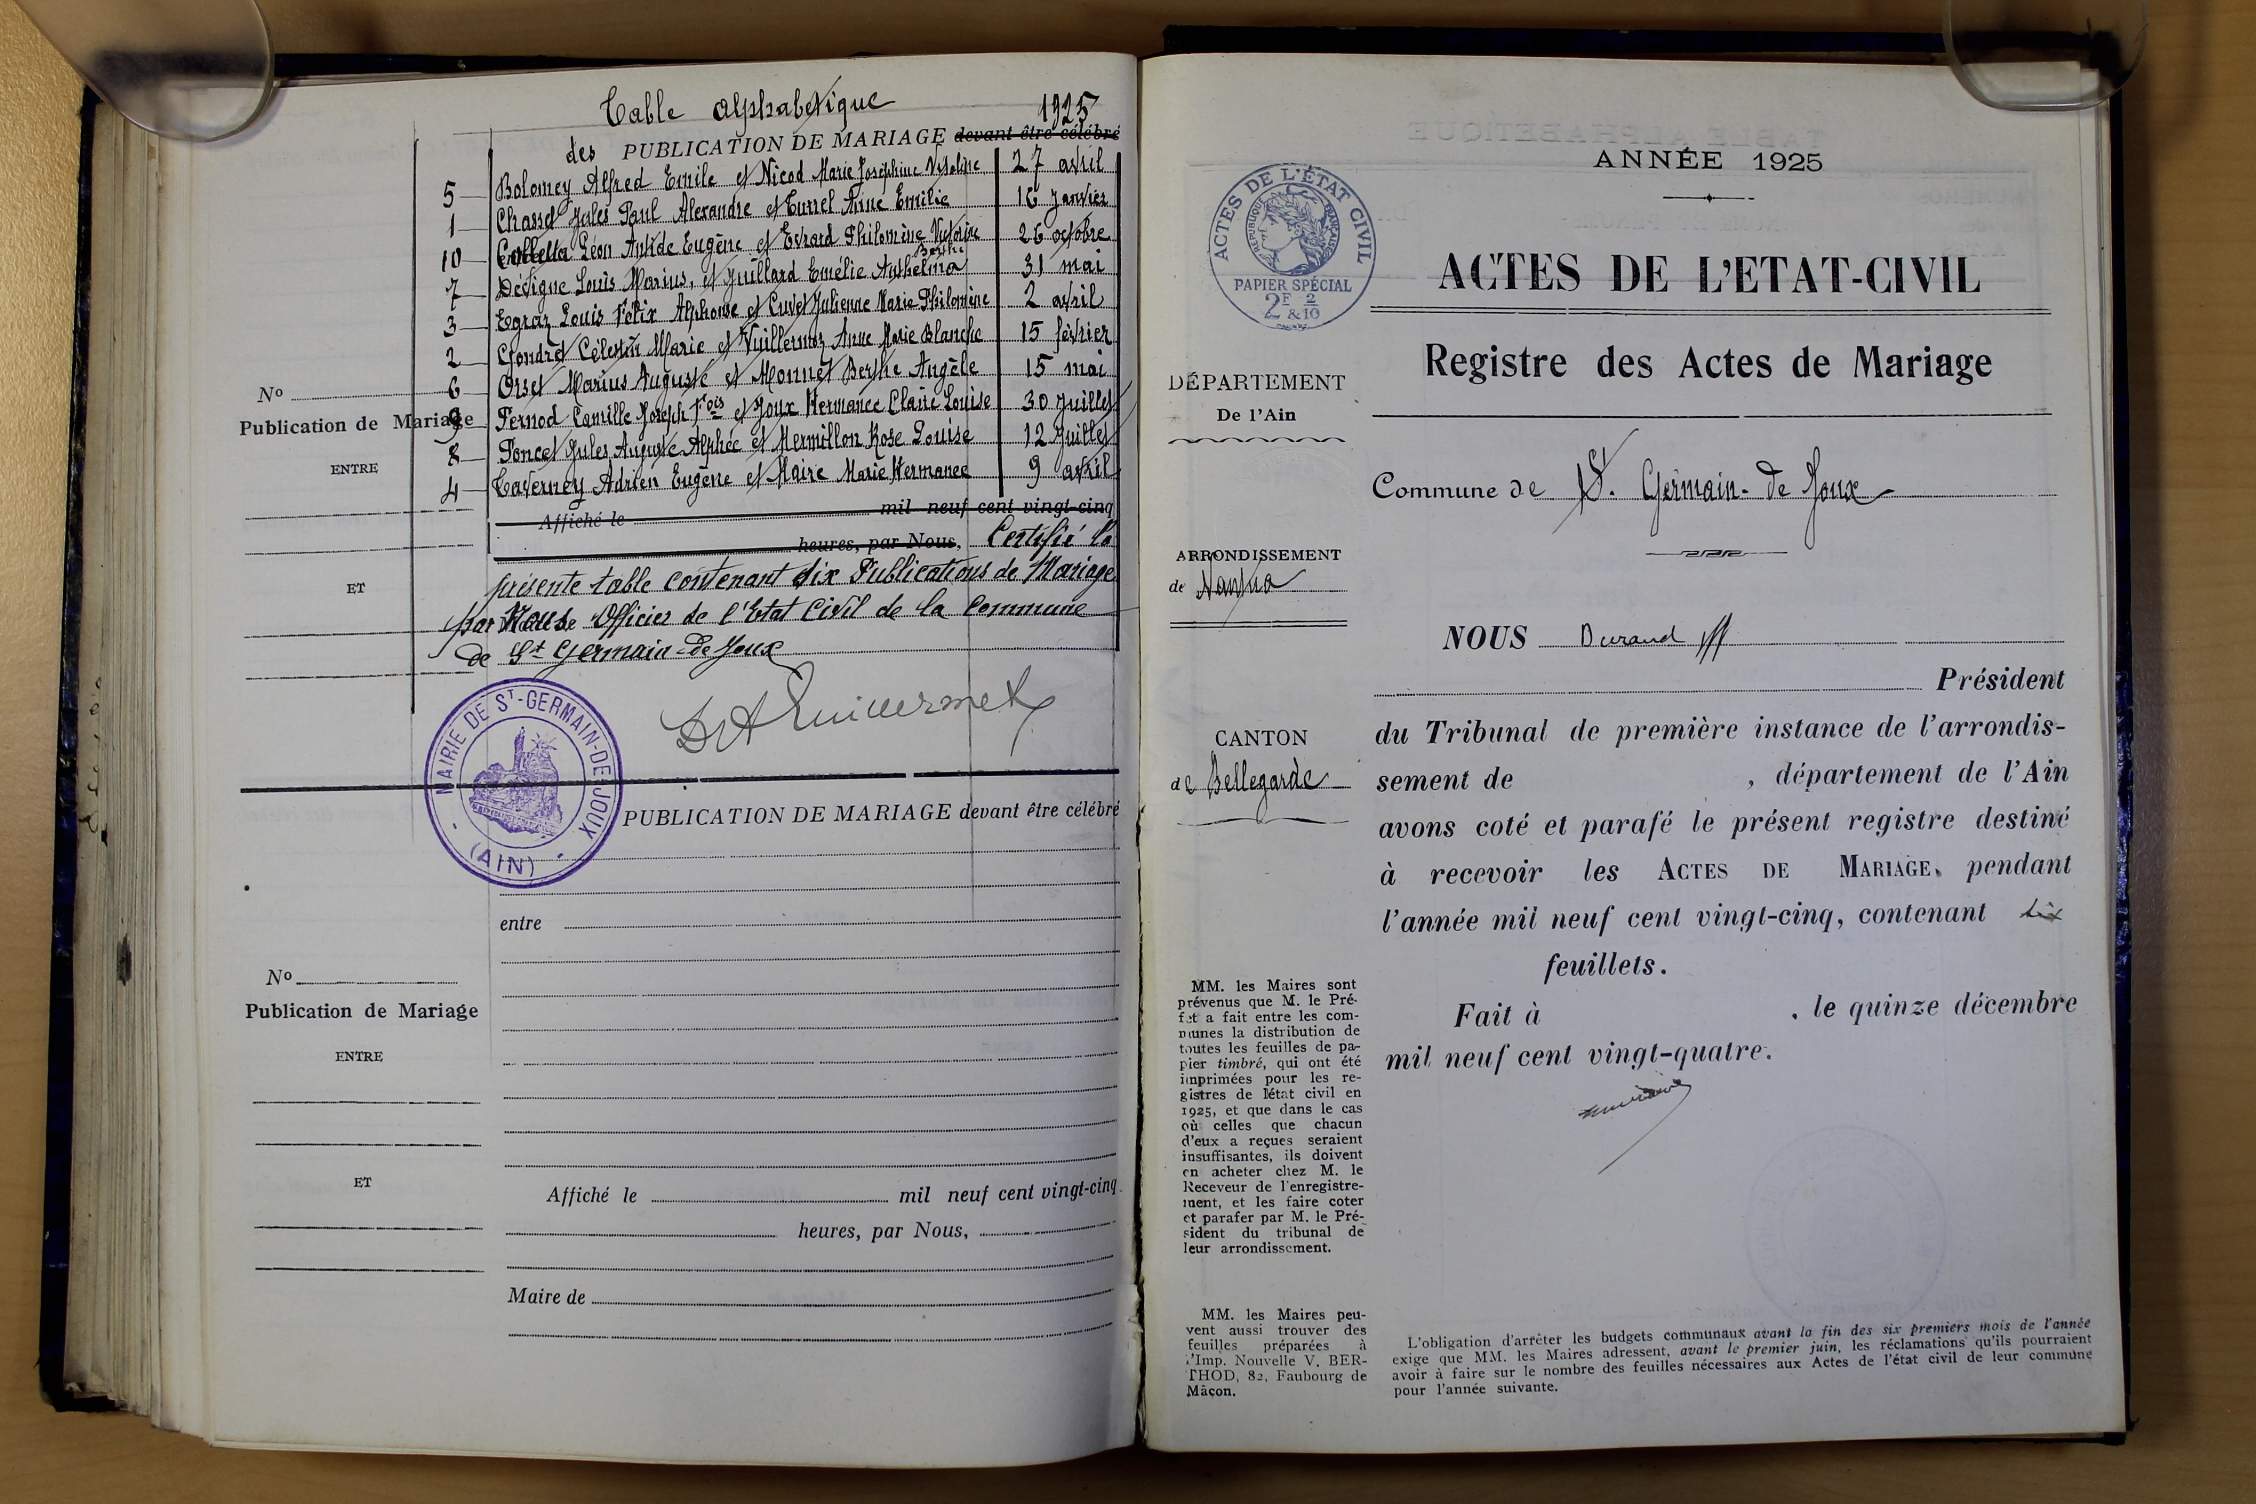 Table alphabétique 1925
des PUBLICATION DE MARIAGE devant être célébré
5 Bolomey Alfred Emile et Nicod Marie Joséphine 27 avril
1 Chassel Jules Paul Alexandre et Turrel Anne Emilie 16 janvier
10 Collella Léon Aristide Eugène et Evrard Philomène Victorine 26 octobre
Berthe
7 Dévigne Louis Marius, et Juillard Emélie Anthelma 31 mai
3 Egraz Louis Félix Alphonse et Cuvet Julienne Marie Philomène 2 avril
2 Gondret Célestin Marie et Vuillermoz Anne Marie Blanche 15 février
6 Orset Marius Auguste et Monnet Berthe Angèle 15 mai
9 Pernod Camille Joseph Fois et Joux Hermance Claire Louise 30 juillet
8 Poncet Jules Auguste Alphée et Mermillon Rose Louise 12 juillet
4 Taverney Adrien Eugène et Maire Marie Hermance 9 avril
Nº
Publication de Mariage
ENTRE
ET
Affiché le mil neuf cent vingt-cinq
heures, par Nous, Certifié la
présente table contenant dix Publications de Mariage
par Nous Officier de l'Etat Civil de la Commune
de St Germain-de-Joux
MAIRIE DE ST-GERMAIN-DE-JOUX
(AIN)
PUBLICATION DE MARIAGE devant être célébré
entre
Nº
Publication de Mariage
ENTRE
ET
Affiché le mil neuf cent vingt-cinq
heures, par Nous,
Maire de
ANNÉE 1925
ACTES DE L'ÉTAT CIVIL
RÉPUBLIQUE FRANÇAISE
PAPIER SPÉCIAL
2F & 2/10
ACTES DE L'ETAT-CIVIL
Registre des Actes de Mariage
DÉPARTEMENT
De l'Ain
Commune de St. Germain-de Joux
ARRONDISSEMENT
de Nantua
CANTON
de Bellegarde
NOUS Durand
Président
du Tribunal de première instance de l'arrondis-
sement de , département de l'Ain
avons coté et parafé le présent registre destiné
à recevoir les ACTES DE MARIAGE, pendant
l'année mil neuf cent vingt-cinq, contenant dix
feuillets.
Fait à , le quinze décembre
mil neuf cent vingt-quatre.
MM. les Maires sont
prévenus que M. le Pré-
fet a fait entre les com-
munes la distribution de
toutes les feuilles de pa-
pier timbré, qui ont été
imprimées pour les re-
gistres de l'état civil en
1925, et que dans le cas
où celles que chacun
d'eux a reçues seraient
insuffisantes, ils doivent
en acheter chez M. le
Receveur de l'enregistre-
ment, et les faire coter
et parafer par M. le Pré-
sident du tribunal de
leur arrondissement.
MM. les Maires peu-
vent aussi trouver des
feuilles préparées à
l'Imp. Nouvelle V. BER-
THOD, 82, Faubourg de
Mâcon.
L'obligation d'arrêter les budgets communaux avant la fin des six premiers mois de l'année
exige que MM. les Maires adressent, avant le premier juin, les réclamations qu'ils pourraient
avoir à faire sur le nombre des feuilles nécessaires aux Actes de l'état civil de leur commune
pour l'année suivante.